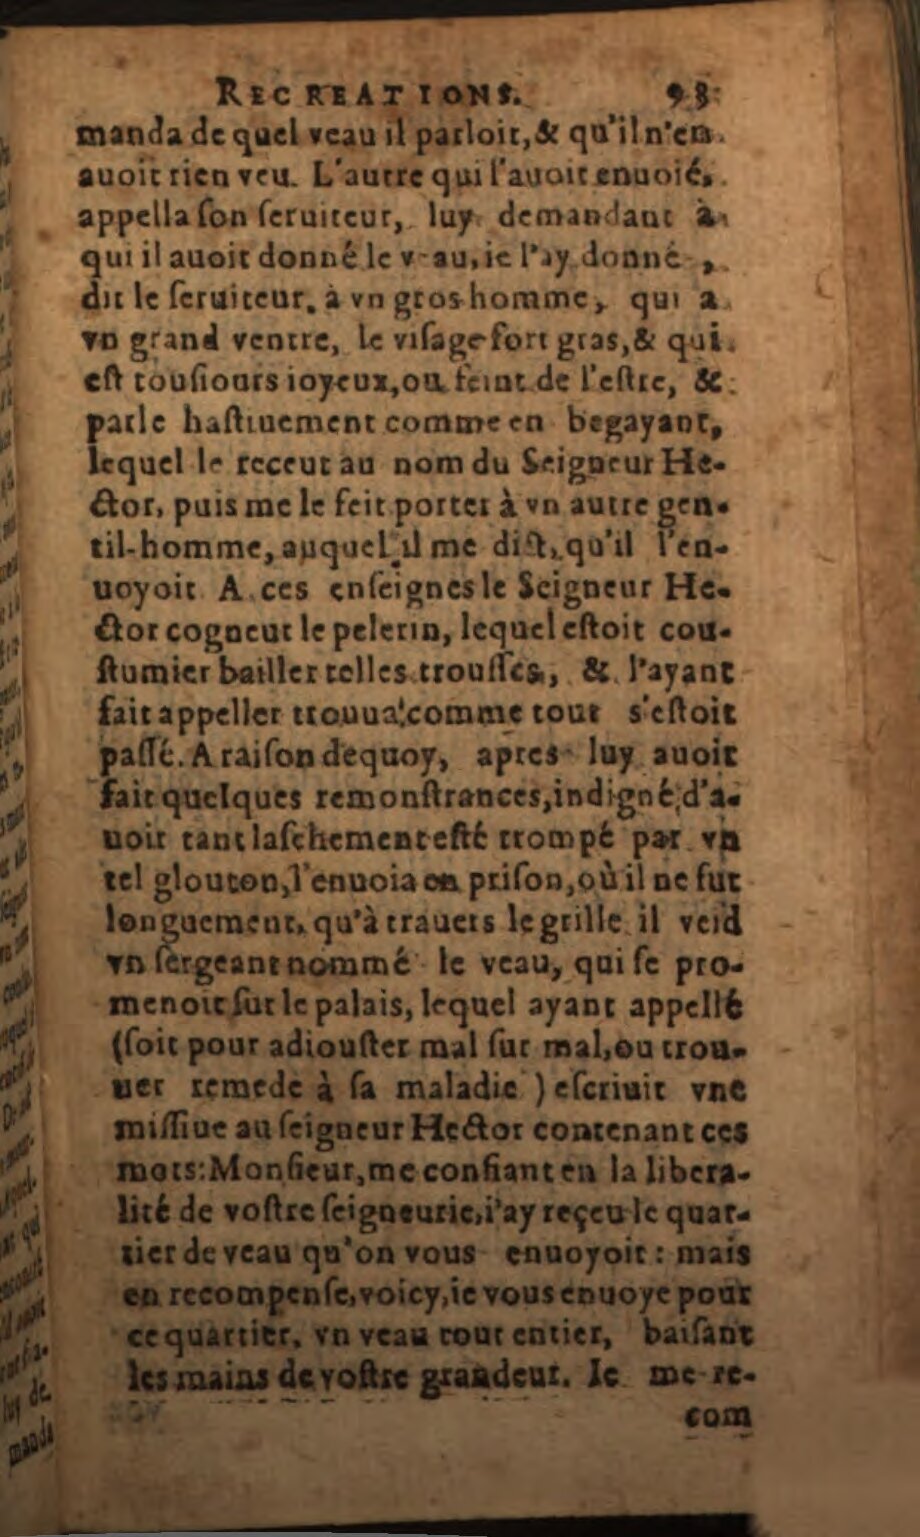 RECREATIONS. 93
manda de quel veau il parloit, & qu'il n'en
auoit rien veu. L'autre qui l'auoit enuoié,
appella son seruiteur, luy demandant à
qui il auoit donné le veau, ie l'ay donné,
dit le seruiteur, à vn gros homme, qui a
vn grand ventre, le visage fort gras, & qui
est tousiours ioyeux, ou feint de l'estre, &
parle hastiuement comme en begayant,
lequel le receut au nom du Seigneur He-
ctor, puis me le feit porter à vn autre gen-
til-homme, auquel il me dist, qu'il l'en-
uoyoit. A ces enseignes le Seigneur He-
ctor cogneut le pelerin, lequel estoit cou-
stumier bailler telles trousses, & l'ayant
fait appeller trouua comme tout s'estoit
passé. A raison dequoy, apres luy auoit
fait quelques remonstrances, indigné d'a-
uoir tant laschement esté trompé par vn
tel glouton, l'enuoia en prison, où il ne fut
longuement, qu'à trauers le grille il veid
vn sergeant nommé le veau, qui se pro-
menoit sur le palais, lequel ayant appellé
(soit pour adiouster mal sur mal, ou trou-
uer remede à sa maladie) escriuit vne
missiue au seigneur Hector contenant ces
mots: Monsieur, me confiant en la libera-
lité de vostre seigneurie, i'ay reçeu le quar-
tier de veau qu'on vous enuoyoit: mais
en recompense, voicy, ie vous enuoye pour
ce quartier, vn veau tout entier, baisant
les mains de vostre grandeur. Ie me re-
com